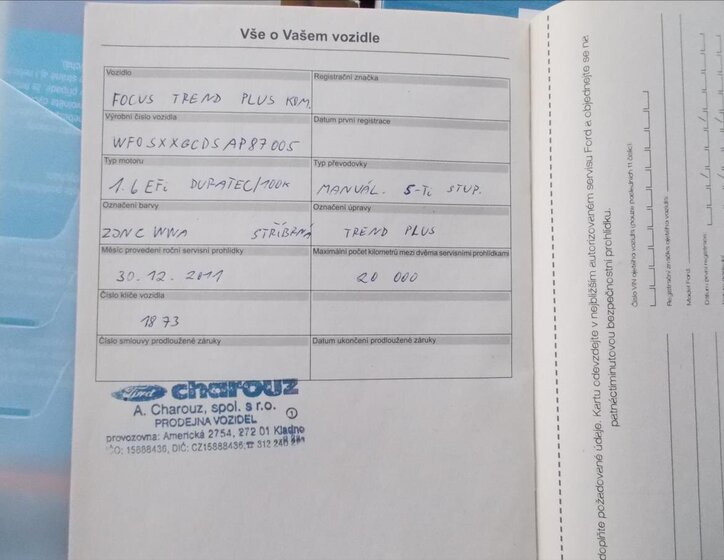 Vše o Vašem vozidle
Vozidlo
FOCUS TREND PLUS KOM.
Registrační značka
Výrobní číslo vozidla
WF0SXXGCDSAP87005
Datum první registrace
Typ motoru
1.6 EFi DURATEC/100k
Typ převodovky
MANUÁL. 5-Ti STUP.
Označení barvy
ZJNC WWA STŘÍBRNÁ
Označení úpravy
TREND PLUS
Měsíc provedení roční servisní prohlídky
30.12.2011
Maximální počet kilometrů mezi dvěma servisními prohlídkami
20 000
Číslo klíče vozidla
1873
Číslo smlouvy prodloužené záruky
Datum ukončení prodloužené záruky
Ford charouz
A. Charouz, spol. s r.o.
PRODEJNA VOZIDEL 1
provozovna: Americká 2754, 272 01 Kladno
IČO: 15888436, DIČ: CZ15888436, ☎ 312 246
doplňte požadované údaje. Kartu odevzdejte v nejbližším autorizovaném servisu Ford a objednejte se na
patnáctiminutovou bezpečnostní prohlídku.
Číslo VIN ojetého vozidla (pouze posledních 11 číslic):
Registrační značka ojetého vozidla:
Model Ford:
Datum první registrace: